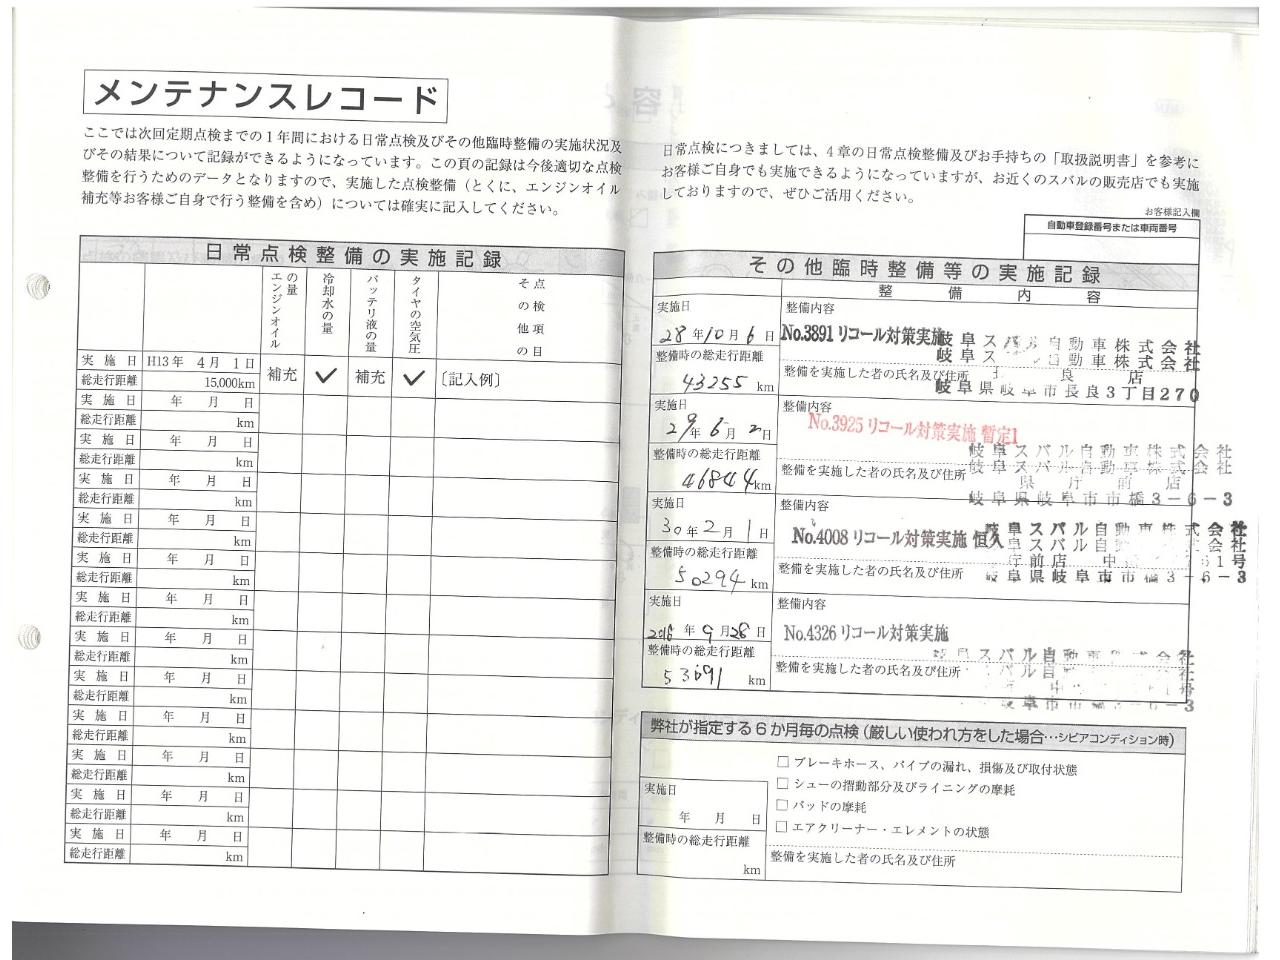 メンテナンスレコード
ここでは次回定期点検までの1年間における日常点検及びその他臨時整備の実施状況及
びその結果について記録ができるようになっています。この頁の記録は今後適切な点検
整備を行うためのデータとなりますので、実施した点検整備（とくに、エンジンオイル
補充等お客様ご自身で行う整備を含め）については確実に記入してください。
日常点検整備の実施記録
エンジンオイルの量
冷却水の量
バッテリ液の量
タイヤの空気圧
その他の点検項目
実施日 H13年 4月 1日
総走行距離 15,000km
補充 ✓ 補充 ✓ 〔記入例〕
実施日 年 月 日
総走行距離 km
実施日 年 月 日
総走行距離 km
実施日 年 月 日
総走行距離 km
実施日 年 月 日
総走行距離 km
実施日 年 月 日
総走行距離 km
実施日 年 月 日
総走行距離 km
実施日 年 月 日
総走行距離 km
実施日 年 月 日
総走行距離 km
実施日 年 月 日
総走行距離 km
実施日 年 月 日
総走行距離 km
実施日 年 月 日
総走行距離 km
実施日 年 月 日
総走行距離 km
日常点検につきましては、4章の日常点検整備及びお手持ちの「取扱説明書」を参考に
お客様ご自身でも実施できるようになっていますが、お近くのスバルの販売店でも実施
しておりますので、ぜひご活用ください。
お客様記入欄
自動車登録番号または車両番号
その他臨時整備等の実施記録
整備内容
実施日
28年10月6日
整備時の総走行距離
43255 km
整備内容
No.3891 リコール対策実施
岐阜スバル自動車株式会社
岐阜スバル自動車株式会社
整備を実施した者の氏名及び住所
良店
岐阜県岐阜市長良3丁目270
実施日
29年6月2日
整備時の総走行距離
46844km
整備内容
No.3925 リコール対策実施 暫定1
岐阜スバル自動車株式会社
岐阜スバル自動車株式会社
整備を実施した者の氏名及び住所
県庁前店
岐阜県岐阜市市橋3-6-3
実施日
30年2月1日
整備時の総走行距離
50294km
整備内容
No.4008 リコール対策実施 恒久
岐阜スバル自動車株式会社
阜スバル自動車株式会社
庁前店
整備を実施した者の氏名及び住所
岐阜県岐阜市市橋3-6-3
実施日
年9月28日
整備時の総走行距離
53691 km
整備内容
No.4326 リコール対策実施
岐阜スバル自動車株式会社
整備を実施した者の氏名及び住所
岐阜市市橋3-6-3
弊社が指定する6か月毎の点検（厳しい使われ方をした場合…シビアコンディション時）
実施日
年 月 日
整備時の総走行距離
km
□ ブレーキホース、パイプの漏れ、損傷及び取付状態
□ シューの摺動部分及びライニングの摩耗
□ パッドの摩耗
□ エアクリーナー・エレメントの状態
整備を実施した者の氏名及び住所